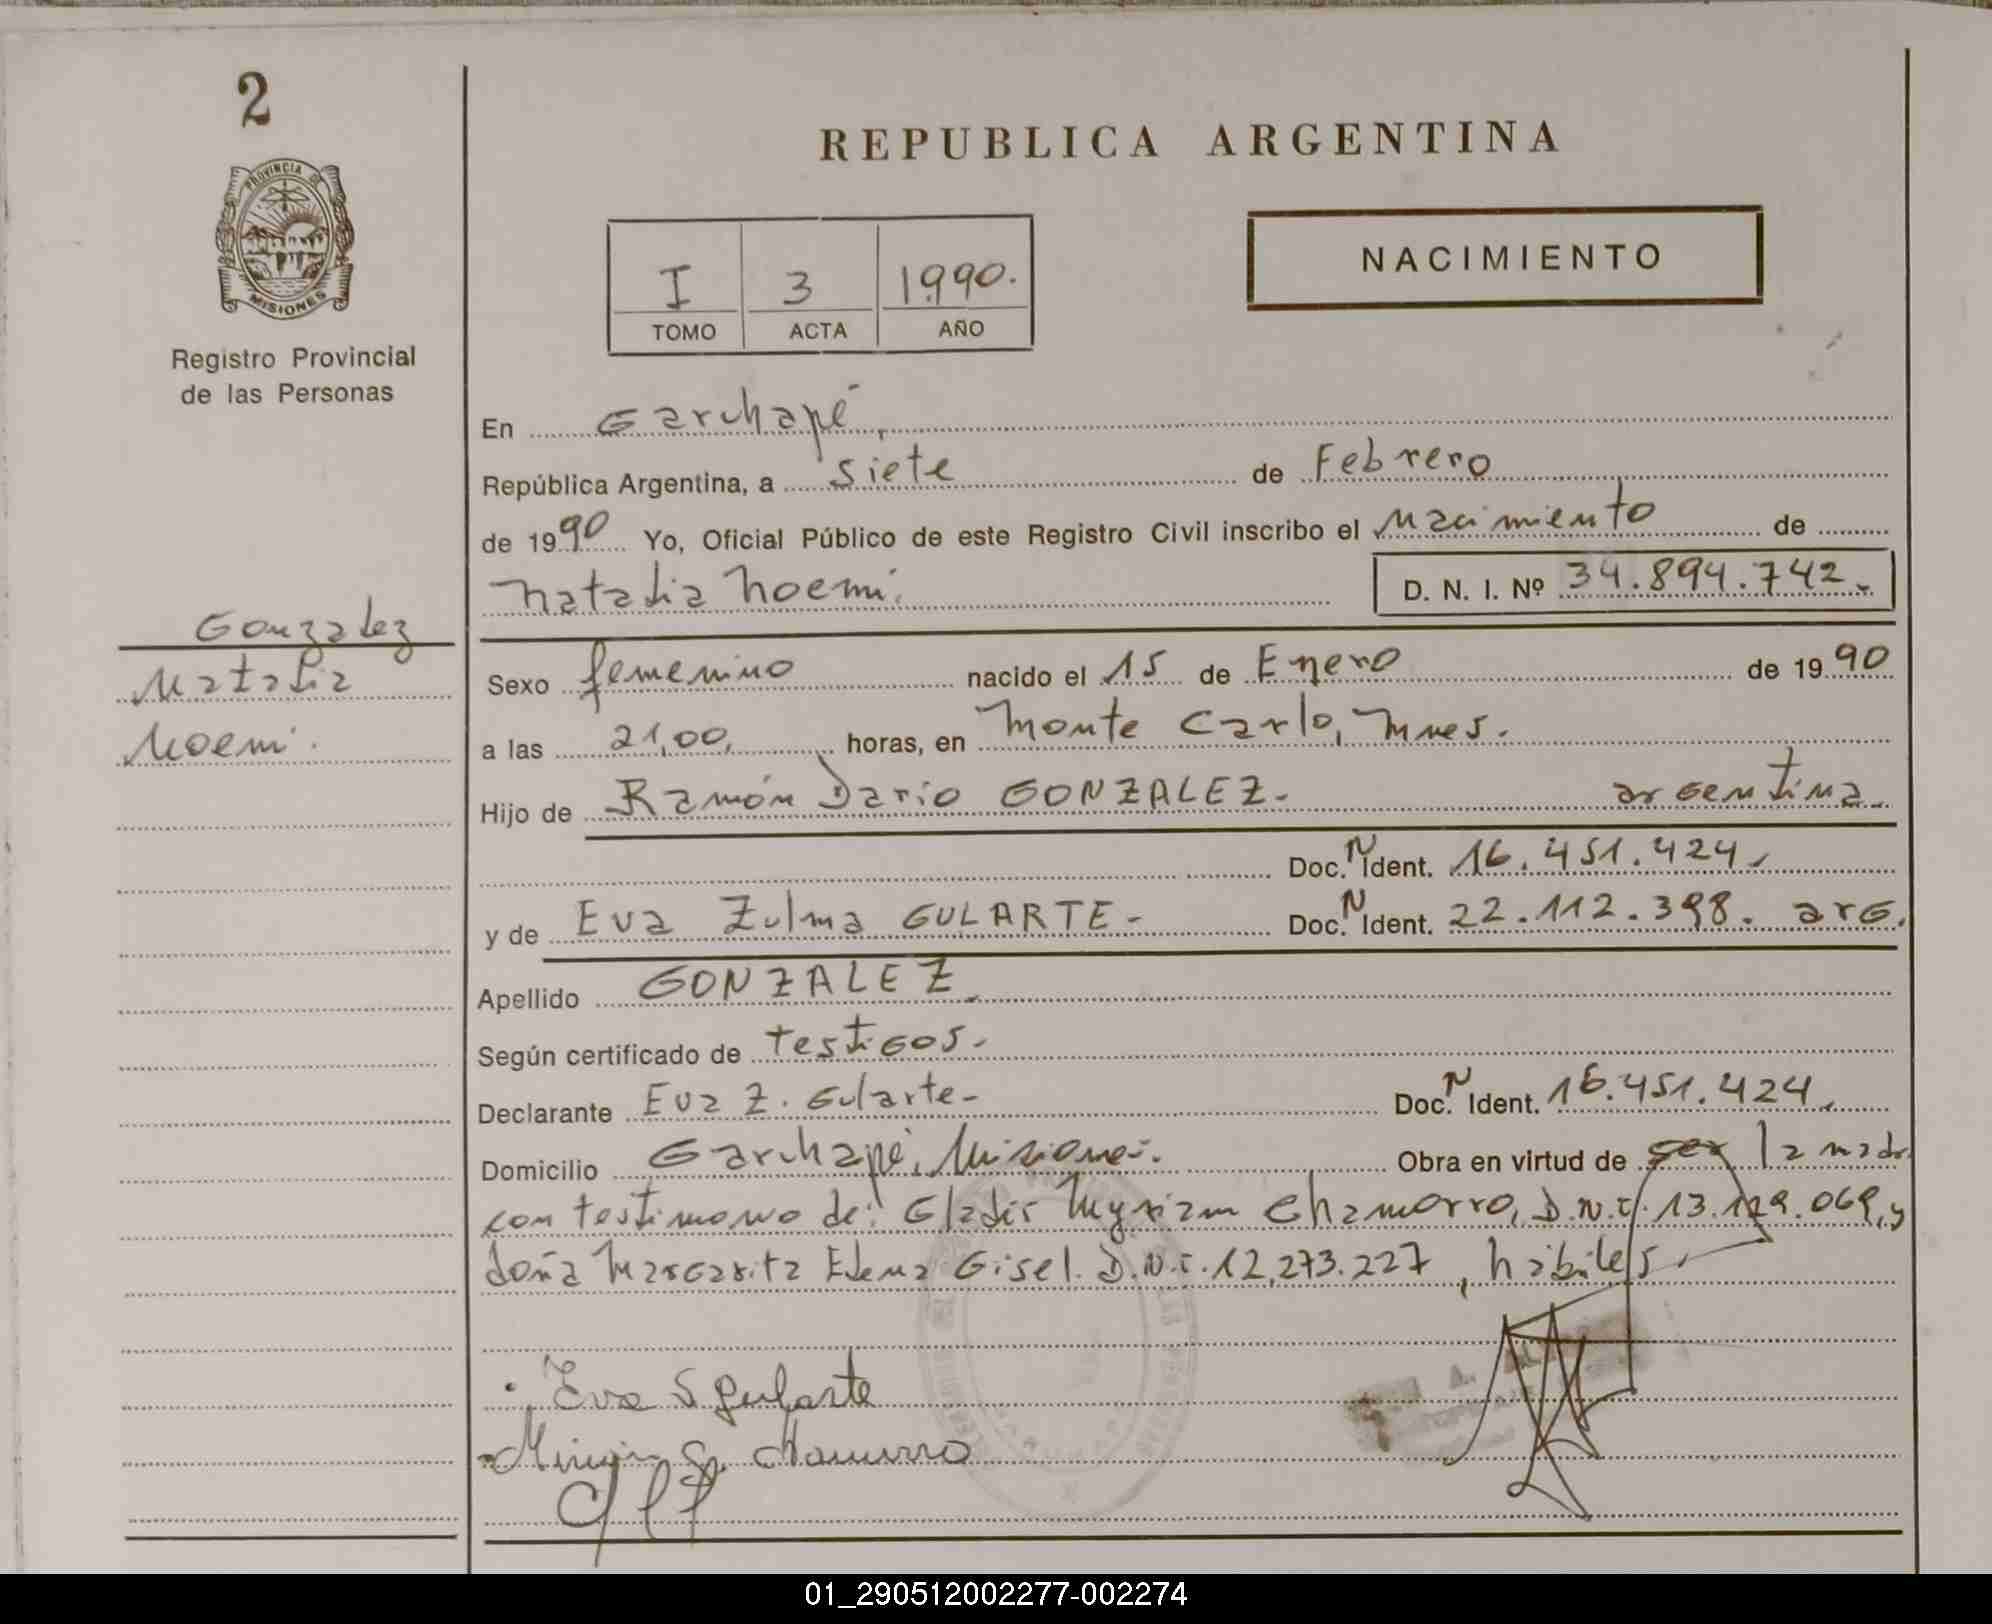 2
REPUBLICA ARGENTINA
PROVINCIA DE
MISIONES
NACIMIENTO
I 3 1990.
TOMO ACTA AÑO
Registro Provincial
de las Personas
En Garuhapé,
República Argentina, a siete de Febrero
de 1990 Yo, Oficial Público de este Registro Civil inscribo el Nacimiento de
Natalia Noemi. D. N. I. Nº 34.894.742.
Gonzalez
Natalia
Noemi.
Sexo femenino nacido el 15 de Enero de 1990
a las 21,00, horas, en Monte Carlo, Mnes.
Hijo de Ramón Dario GONZALEZ. argentina
Doc. N Ident. 16.451.424,
y de Eva Zulma GULARTE- Doc. N Ident. 22.112.398. arg.
Apellido GONZALEZ.
Según certificado de testigos.
Declarante Eva Z. Gularte- Doc. N Ident. 16.451.424,
Domicilio Garuhapé, Misiones. Obra en virtud de ser la madre
con testimonio de: Gladis Myriam Chamorro, D.N.I. 13.129.069, y
doña Margarita Elena Gisel. D.N.I. 12,273.227, hábiles.
Eva S Gularte